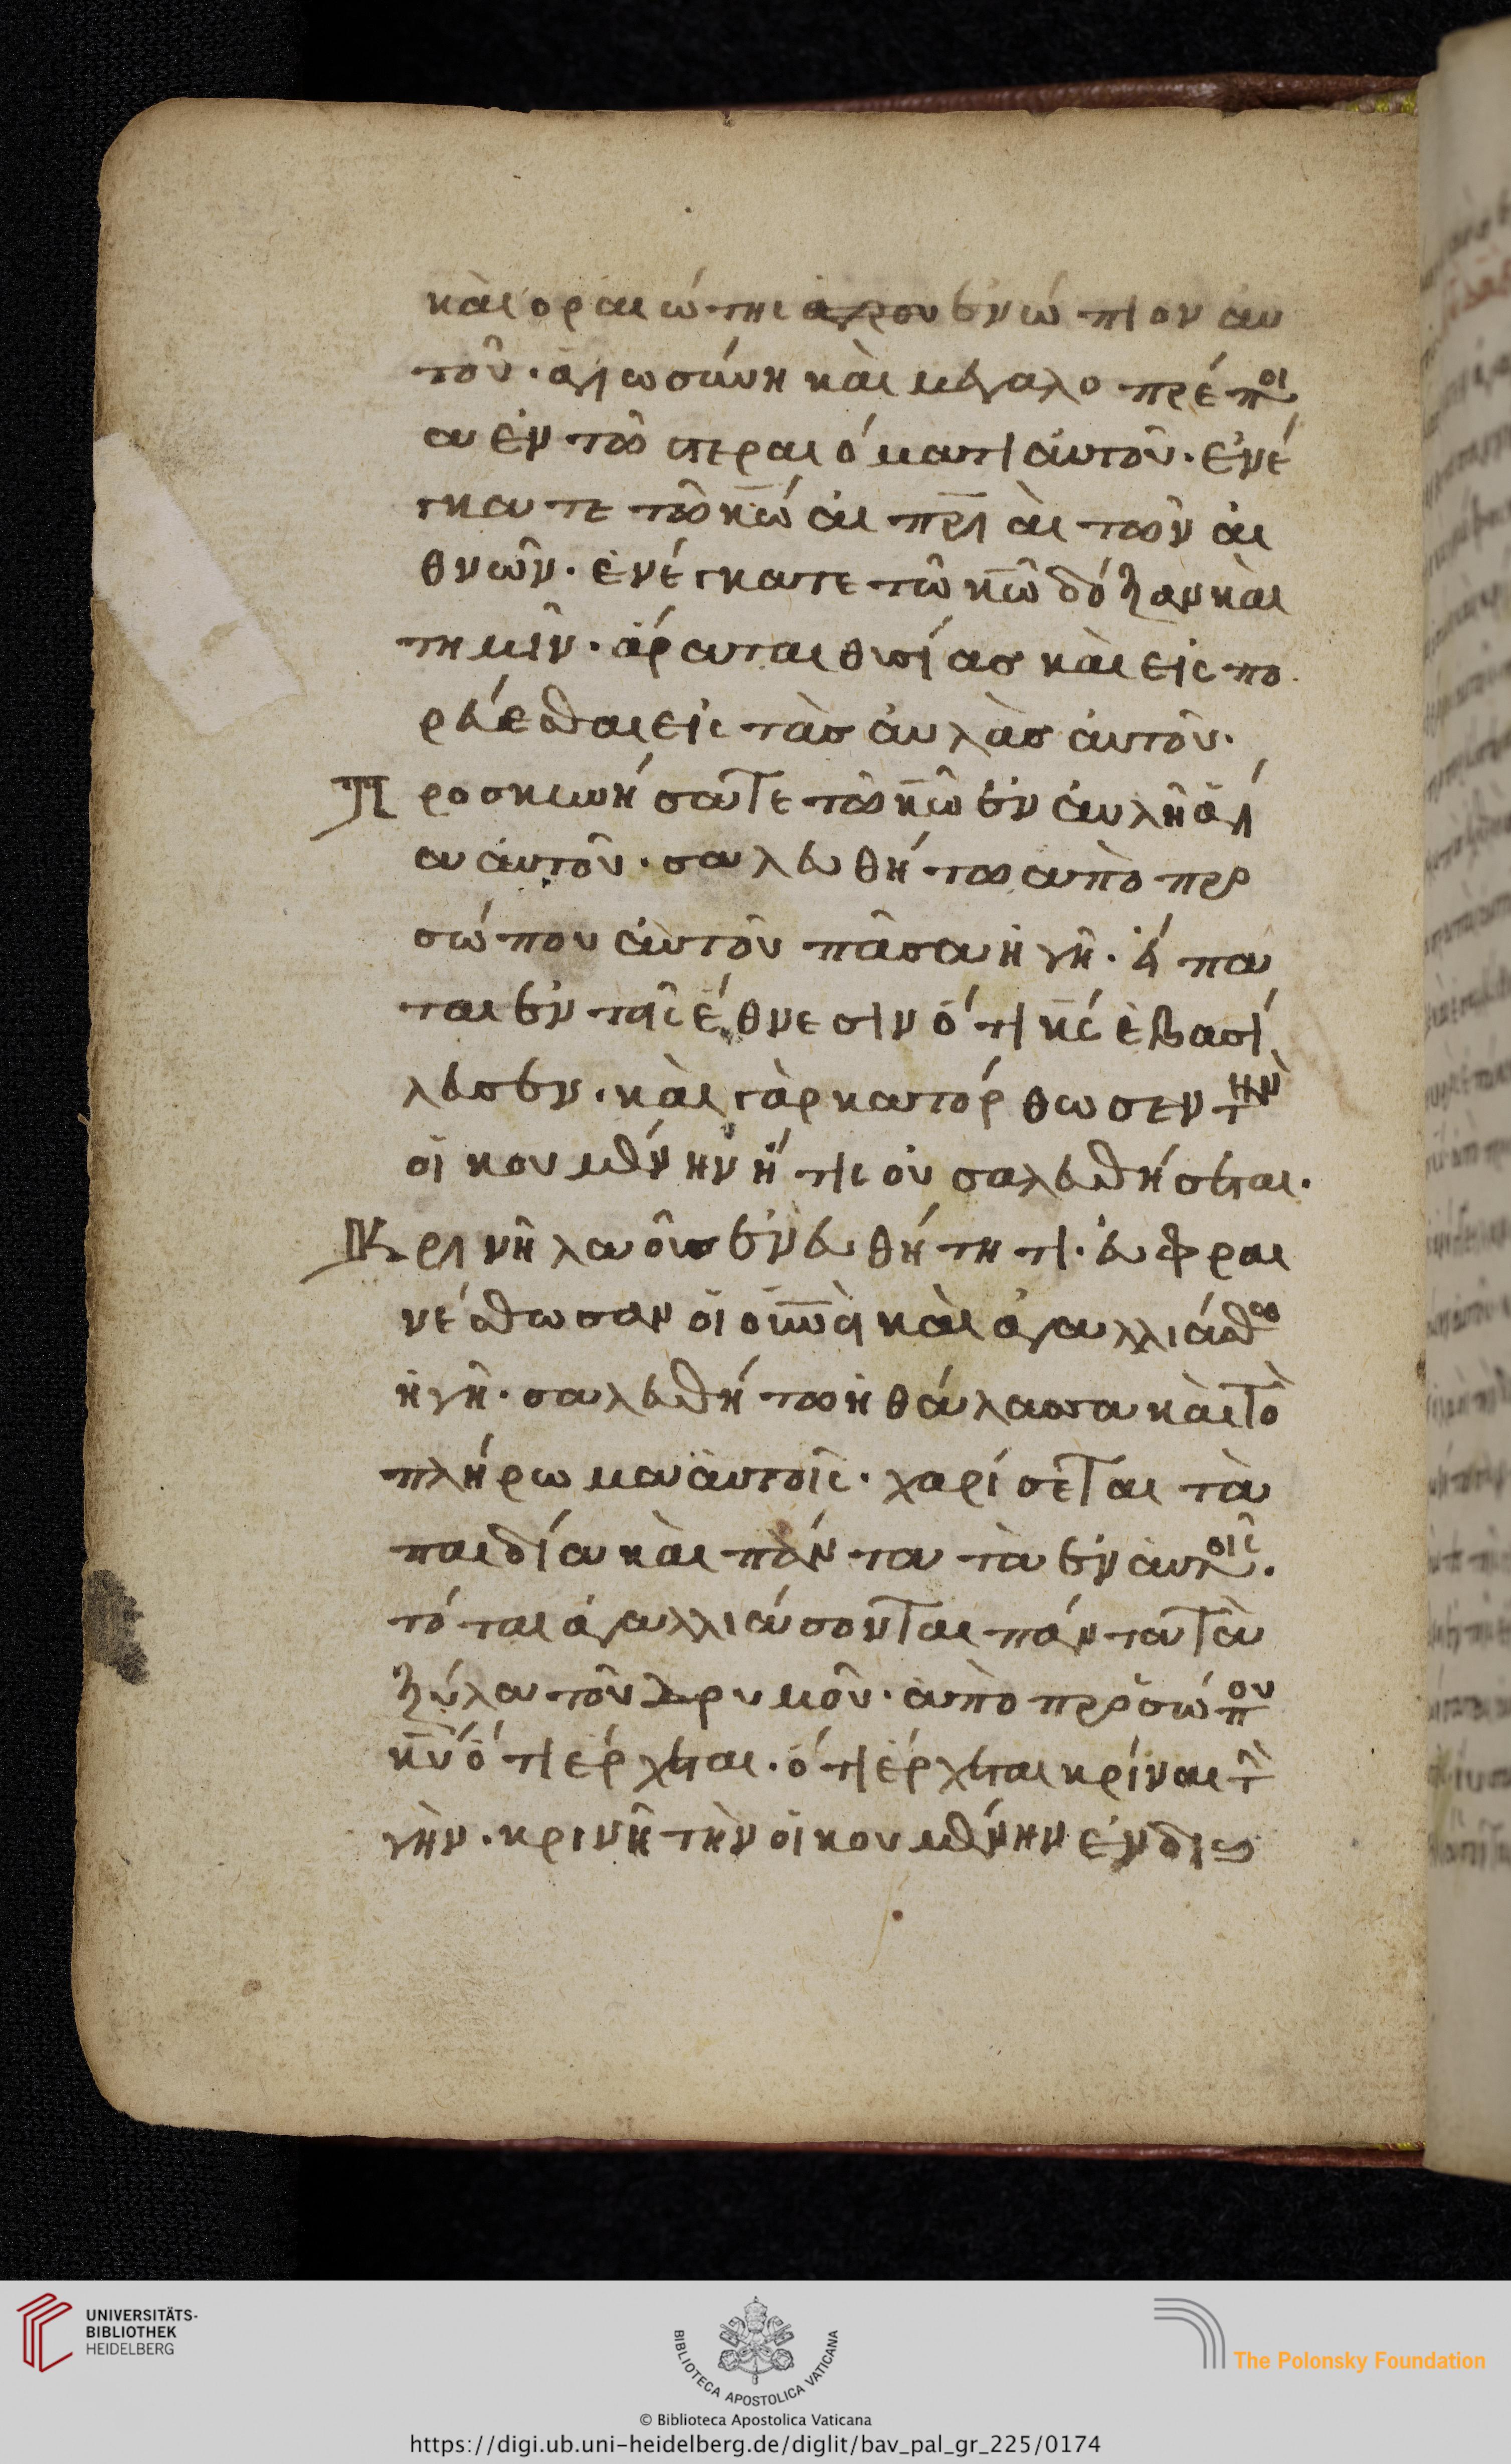 κὰι ὁραιώτης ἁγιου ἐνώπιον αυ
τοῦ. ἁγιωσύνη κὰι μεγαλοπρέποι
α ἐν τῶ στεραιόματι ἀυτοῦ. ἐνέ
γκατε τῶ κ̅ω̅ ἁι π̅ρ̅ι̅ ὰι τῶν ἀι
θνῶν. ἐνέγκατε τῶ κ̅ω̅ δόξαν κὰι
τημὶν. ἄραται θυσίας κὰι εἰς πο
ρέυεσθαι εἰς τὰς ἀυλὰς ἀυτοῦ.
Προσκυνήσατε τῶ κ̅ω̅ ἐν ἀυλῆ ἁγί
α ἀυτοῦ. σαλευθήτω ἀπὸ προ
σώπου ἀυτοῦ πᾶσα ἡ γῆ. ἔιπα
ται ἐν τοῖς ἔθνεσιν ὅτι κ̅ς̅ ἐβασί
λευσεν. κὰι γὰρ κατόρθωσεν τὴν
οἰκουμένην ἥτις οὐ σαλευθήσεται.
Κρινῆ λαοὺς ἐν ευθήτητι. ἐυφραι
νέσθωσαν οἱ ο̅υ̅ν̅ο̅ὶ κὰι ἀγαλλιάσθω
ἡ γῆ. σαλευθήτω ἡ θάλασσα κὰι τὸ
πλήρωμα ἀυτοῖς. χαρίσεται τὰ
παιδία κὰι πάντα τὰ ἐν ἀυτοῖς.
τόται ἀγαλλιάσονται πάντα τὰ
ξύλα τοῦ δρυμοῦ. ἀπὸ προσώπου
κ̅υ̅ ὅτι ἔρχεται. ὅτι ἔρχεται κρίναι τὴ
γὴν. κρινῆ τὴν οἰκουμένην ἐν δικ
UNIVERSITÄTS-
BIBLIOTHEK
HEIDELBERG
BIBLIOTECA APOSTOLICA VATICANA
The Polonsky Foundation
© Biblioteca Apostolica Vaticana
https://digi.ub.uni-heidelberg.de/diglit/bav_pal_gr_225/0174